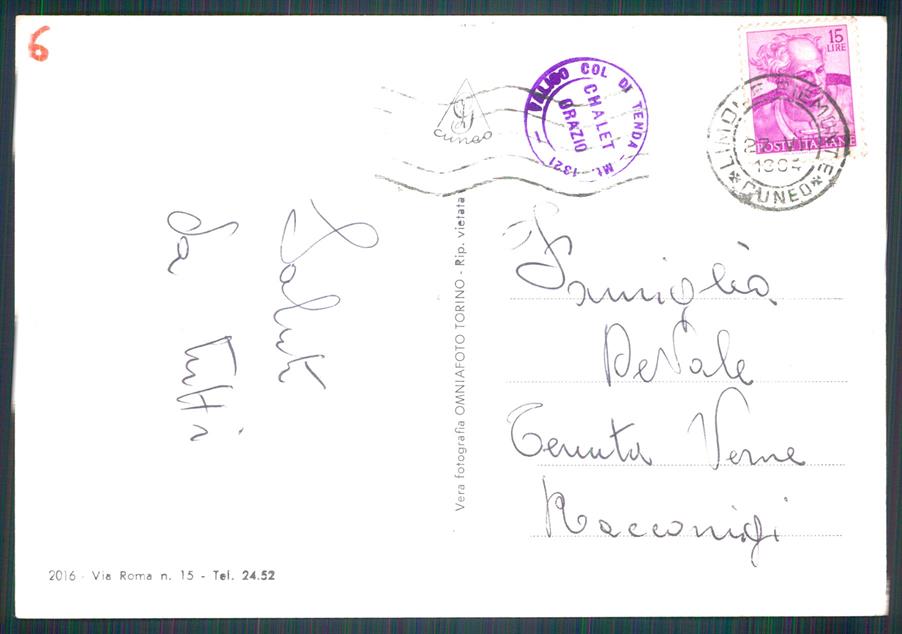 6
15
LIRE
POSTE ITALIANE
LIMONE PIEMONTE
1964
*CUNEO*
VALICO COL DI TENDA - Mt. 1321 -
CHALET
ORAZIO
Cuneo
Saluti
da tutti
Famiglia
DeVale
Tenuta Verne
Racconigi
Vera fotografia OMNIAFOTO TORINO - Rip. vietata
2016 - Via Roma n. 15 - Tel. 24.52